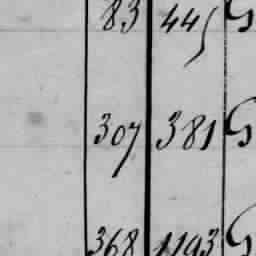 83 445 G
307 381 G
368 1193 G